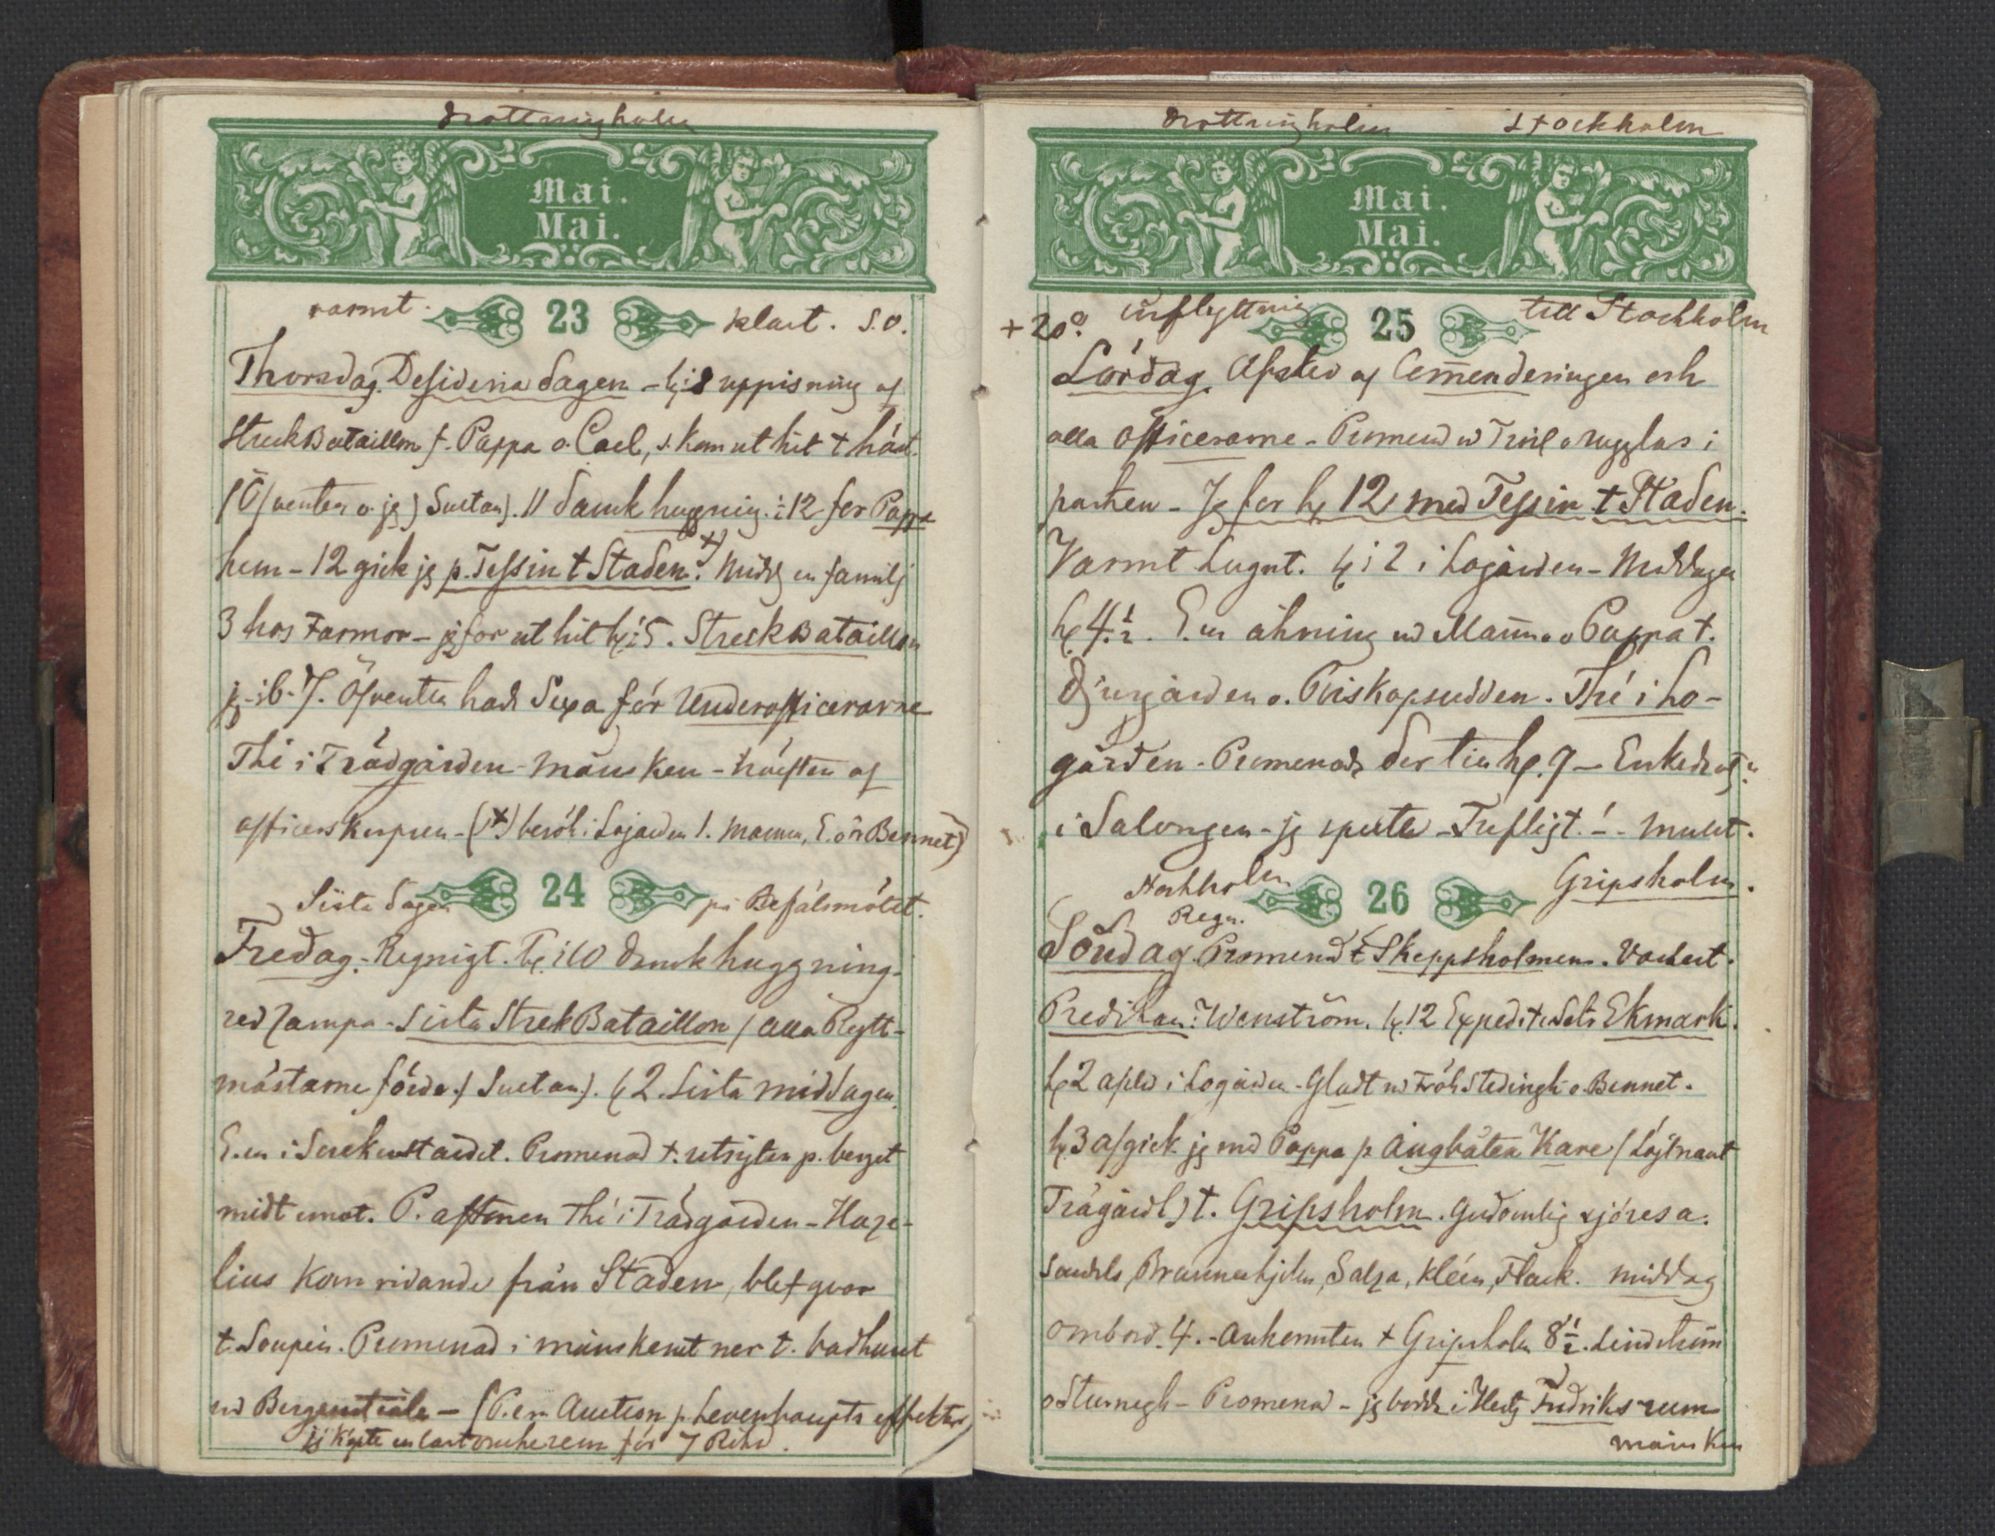 Drottningholm
Mai.
Mai.
varmt. 23 klart. S.O.
Thorsdag. Desideria dagen - kl: 8 uppisning af
StreckBataillon f. Pappa o. Carl, s. kom ut hit t häst.
(Öfventen o. jag) Suetan). 11 damk huggnig. 12 for Pappa
hem - 12 gick jg p. Tessin t Staden. +) Midd en familj
3 hos Farmor - jg for ut hit kl: 5. StreckBataillon
jg. i 6-7. Öfventen hade Sexa för Underofficerarne
Thé i Trädgården - Månsken - häften af
officerskorpsen - (+) besök i Logården l. Mamma, E. o Bennet)
Sista dagen 24 på Befälsmötet.
Fredag. Regnigt. kl. i 10 damkhuggning.
red Zampa - Sista StrekBataillon / alla Rytt-
mästarne förde / Suetan). kl 2. Sista middagen.
E.m i Serskenstaidet. Promenad t. utsigten p. berget
midt emot. P. aftonen Thé i Trädgården - Haze-
lius kom ridande från Staden, blef qvar
t. Soupén. Promenad i månskenet ner t. badhuset
md Bergenstråle - (P. e.m Auction p. Levenhaupts effekter,
jg köpte en för 7 Rdr.
Drottningholm Stockholm
Mai.
Mai.
+20°. inflyttning 25 till Stockholm
Lördag. Afsked af Commenderingen och
alla officerarne - Promend md Troil o Rugglas i
parken - Jg for kl 12 med Tessin t Staden.
Varmt Lugnt. kl i 2 i Logården - Middagen
kl 4 1/2. E.m åkning md Mamma o Pappa t.
Djurgården o. Biskopsudden. Thé i Lo-
gården - Promenade der till kl. 9 - Enkedrotn
i Salongen - jg spelte - Trefligt. ! - Mulet.
Stockholm 26 Gripsholm.
Regn.
Söndag Promenad t Skeppsholmen. Vackert.
Predikan: Wenström. kl. 12 Exped. Ekmark.
kl 2 i Logården - Gladt md Fröh Stedingk o Bennet.
kl. 3 afgick jg med Pappa p Ångbåten Kare / Löjtnant
Trägårdh) t. Gripsholm. Gudomlig sjöresa.
Sandels, Braunerhjelm, Salza, Kléen, Flack. middag
ombord. 4. - Ankomsten t Gripsholm 8 1/2. Lindström
o Sturnegk - Promenad - jg bodde i Hertg Fredriks rum
månsken